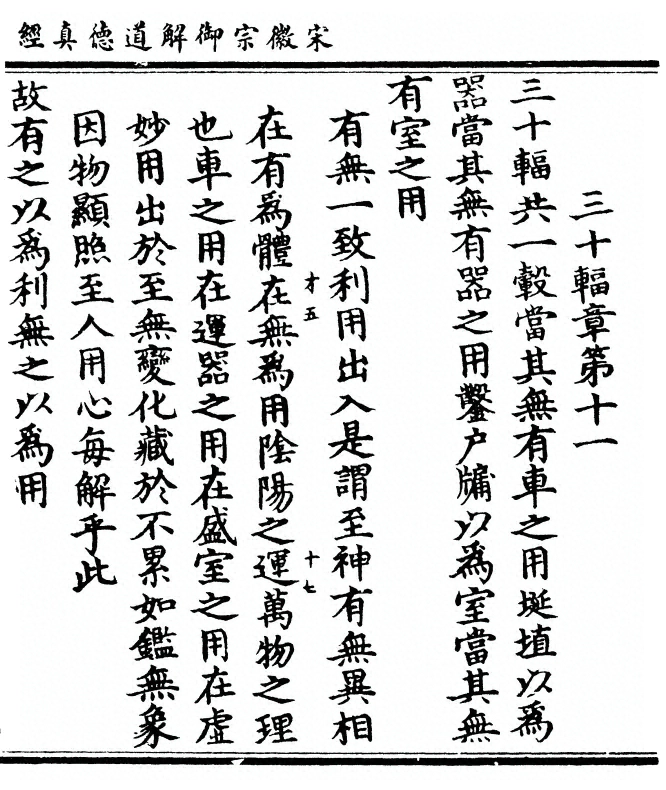 宋徽宗御解道德真經
三十輻章第十一
三十輻共一轂當其無有車之用埏埴以爲
器當其無有器之用鑿户牖以爲室當其無
有室之用
有無一致利用出入是謂至神有無異相
才五
十七
在有爲體在無爲用陰陽之運萬物之理
也車之用在運器之用在盛室之用在虛
妙用出於至無變化藏於不累如鑑無象
因物顯照至人用心每解乎此
故有之以爲利無之以爲用